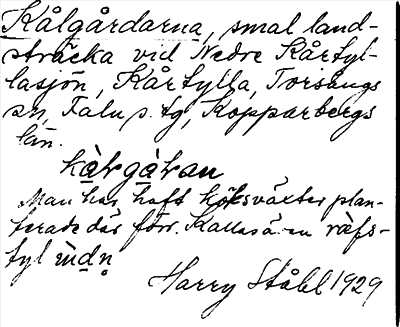 Kålgårdarna, smal land-
sträcka vid Nedre Kårtyl-
lasjön, Kårtylla, Torsångs
sn, Falu s. tg, Kopparbergs
län.
kàlgàḷan
Man har haft köksväxter plan-
terade där förr. Kallas ä. en
Harry Ståhl 1929